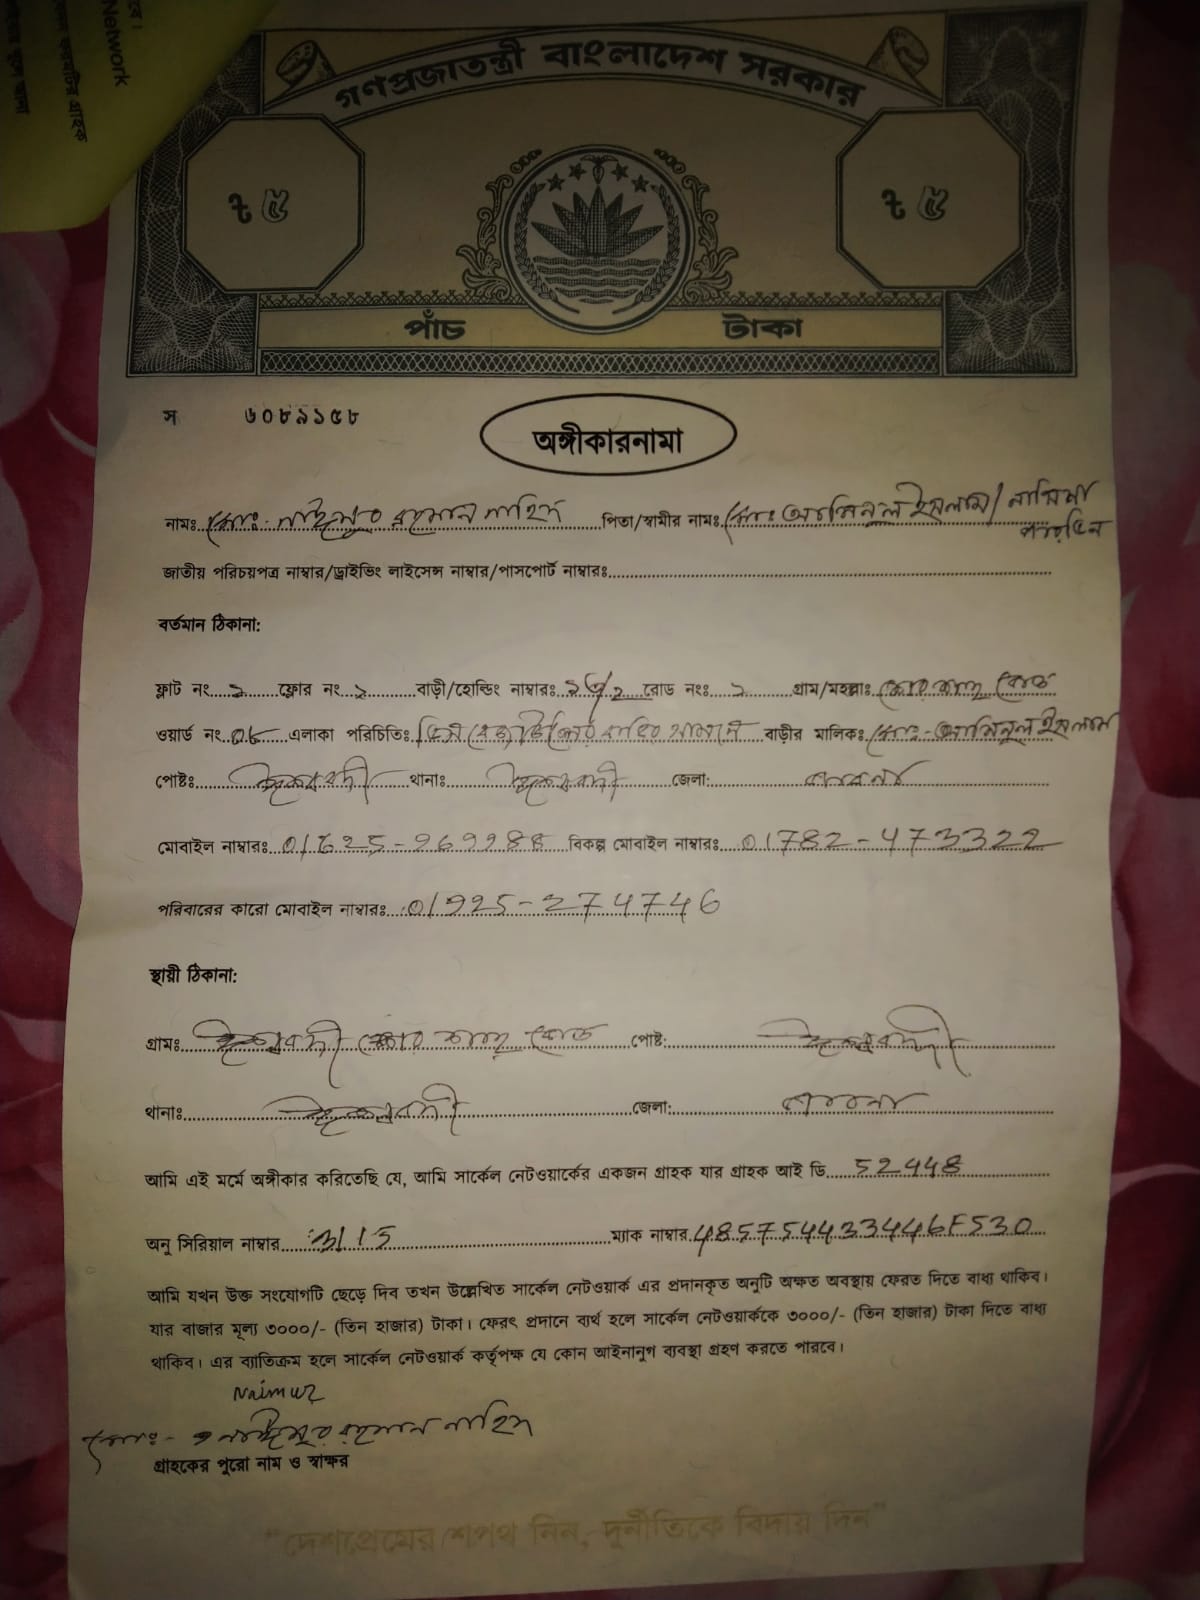 Network
গণপ্রজাতন্ত্রী বাংলাদেশ সরকার
৳ ৫ ৳ ৫
পাঁচ টাকা
স ৬০৮৯১৫৮
অঙ্গীকারনামা
নামঃ মোঃ- নাইমুর রহমান নাহিদ পিতা/স্বামীর নামঃ মোঃ আমিনুল ইসলাম/ নাসিমা
পারভিন
জাতীয় পরিচয়পত্র নাম্বার/ড্রাইভিং লাইসেন্স নাম্বার/পাসপোর্ট নাম্বারঃ
বর্তমান ঠিকানা:
ফ্লাট নং ফ্লোর নং বাড়ী/হোল্ডিং নাম্বারঃ রোড নংঃ গ্রাম/মহল্লাঃ রোড
ওয়ার্ড নং ০৮ এলাকা পরিচিতিঃ বাড়ীর মালিকঃ মোঃ- আমিনুল ইসলাম
পোষ্টঃ ঈশ্বরদী থানাঃ ঈশ্বরদী জেলা: পাবনা
মোবাইল নাম্বারঃ বিকল্প মোবাইল নাম্বারঃ 01782-473322
পরিবারের কারো মোবাইল নাম্বারঃ 01925-274746
স্থায়ী ঠিকানা:
গ্রামঃ ঈশ্বরদী রোড পোষ্ট: ঈশ্বরদী
থানাঃ ঈশ্বরদী জেলা: পাবনা
আমি এই মর্মে অঙ্গীকার করিতেছি যে, আমি সার্কেল নেটওয়ার্কের একজন গ্রাহক যার গ্রাহক আই ডি 52448
অনু সিরিয়াল নাম্বার 3115 ম্যাক নাম্বার 485754433446F530
আমি যখন উক্ত সংযোগটি ছেড়ে দিব তখন উল্লেখিত সার্কেল নেটওয়ার্ক এর প্রদানকৃত অনুটি অক্ষত অবস্থায় ফেরত দিতে বাধ্য থাকিব।
যার বাজার মূল্য ৩০০০/- (তিন হাজার) টাকা। ফেরৎ প্রদানে ব্যর্থ হলে সার্কেল নেটওয়ার্ককে ৩০০০/- (তিন হাজার) টাকা দিতে বাধ্য
থাকিব। এর ব্যাতিক্রম হলে সার্কেল নেটওয়ার্ক কর্তৃপক্ষ যে কোন আইনানুগ ব্যবস্থা গ্রহণ করতে পারবে।
Naimur
মোঃ- নাঈমুর রহমান নাহিদ
গ্রাহকের পুরো নাম ও স্বাক্ষর
"দেশপ্রেমের শপথ নিন, দুর্নীতিকে বিদায় দিন"